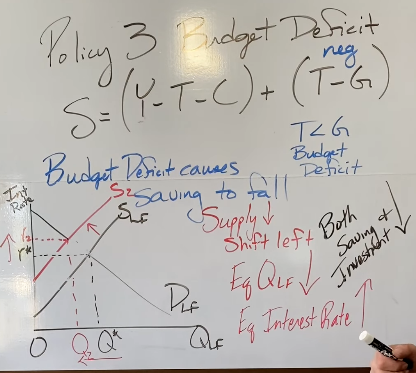 Policy 3 Budget Deficit
neg
S = (Y - T - C) + (T - G)
T < G
Budget
Deficit
Budget Deficit causes
Saving to fall
Int
Rate
S2
SLF
r2
r*
DLF
0
Q2
Q*
QLF
Supply ↓
Shift left
Eq QLF ↓
Eq Interest Rate ↑
Both
Saving &
Investment ↓